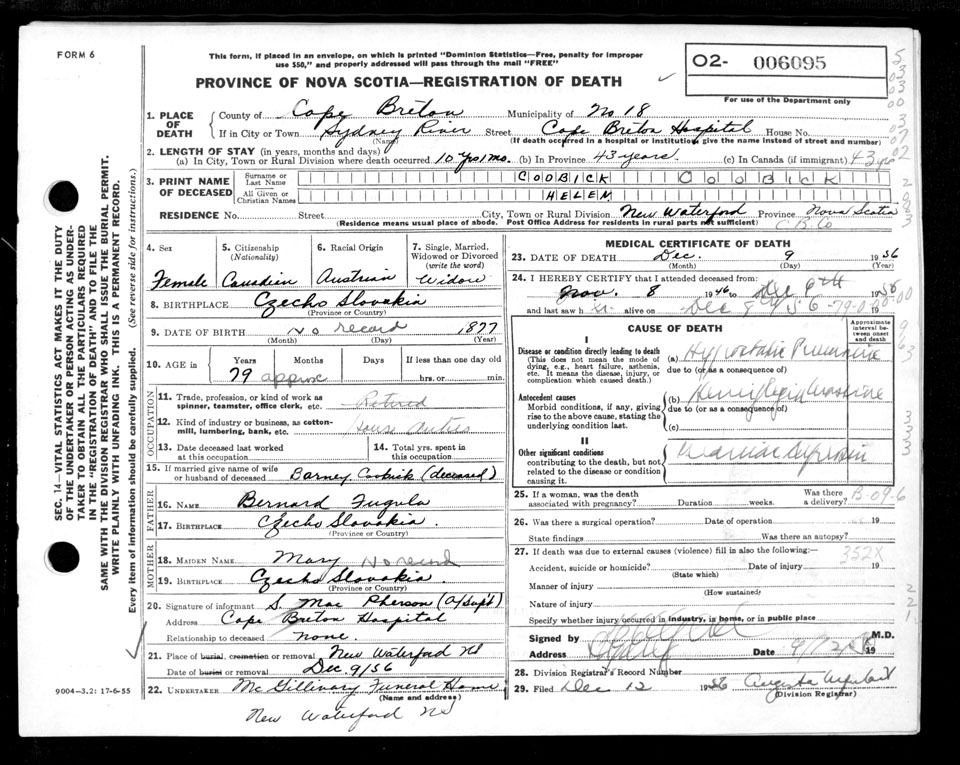 FORM 6
This form, if placed in an envelope, on which is printed "Dominion Statistics—Free, penalty for improper
use $50," and properly addressed will pass through the mail "FREE"
PROVINCE OF NOVA SCOTIA—REGISTRATION OF DEATH
O2- 006095
For use of the Department only
1. PLACE OF DEATH
County of Cape Breton Municipality of No 18
If in City or Town Sydney River Street Cape Breton Hospital House No.
(Name) (If death occurred in a hospital or institution, give the name instead of street and number)
2. LENGTH OF STAY (in years, months and days)
(a) In City, Town or Rural Division where death occurred 10 yrs 1 mo. (b) In Province 43 years. (c) In Canada (if immigrant) 43 yrs
3. PRINT NAME OF DECEASED
Surname or Last Name COOBICK COOBICK
All Given or Christian Names HELEN
RESIDENCE No. Street City, Town or Rural Division New Waterford Province Nova Scotia
(Residence means usual place of abode. Post Office Address for residents in rural parts not sufficient) C.B. Co
4. Sex 5. Citizenship (Nationality) 6. Racial Origin 7. Single, Married, Widowed or Divorced (write the word)
Female Canadian Austrian Widow
8. BIRTHPLACE Czecho Slovakia
(Province or Country)
9. DATE OF BIRTH no record 1877
(Month) (Day) (Year)
10. AGE in Years Months Days If less than one day old
79 approx hrs. or min.
OCCUPATION
11. Trade, profession, or kind of work as spinner, teamster, office clerk, etc. Retired
12. Kind of industry or business, as cotton-mill, lumbering, bank, etc. House duties
13. Date deceased last worked at this occupation 14. Total yrs. spent in this occupation
15. If married give name of wife or husband of deceased Barney Coobick (deceased)
FATHER
16. NAME Bernard Fugula
17. BIRTHPLACE Czecho Slovakia.
(Province or Country)
MOTHER
18. MAIDEN NAME Mary No record
19. BIRTHPLACE Czecho Slovakia.
(Province or Country)
20. Signature of informant S. Mac Pherson (A/Supt)
Address Cape Breton Hospital
Relationship to deceased None.
21. Place of burial, cremation or removal New Waterford NS
Date of burial or removal Dec. 9/56
22. UNDERTAKER Mc Gillivary Funeral Home
(Name and address)
New Waterford NS
9004—3.2: 17-6-55
SEC. 14—VITAL STATISTICS ACT MAKES IT THE DUTY
OF THE UNDERTAKER OR PERSON ACTING AS UNDER-
TAKER TO OBTAIN ALL THE PARTICULARS REQUIRED
IN THE "REGISTRATION OF DEATH" AND TO FILE THE
SAME WITH THE DIVISION REGISTRAR WHO SHALL ISSUE THE BURIAL PERMIT.
WRITE PLAINLY WITH UNFADING INK. THIS IS A PERMANENT RECORD.
Every item of information should be carefully supplied. (See reverse side for instructions.)
MEDICAL CERTIFICATE OF DEATH
23. DATE OF DEATH Dec. 9 1956
(Month) (Day) (Year)
24. I HEREBY CERTIFY that I attended deceased from:
Nov. 8 1946 to Dec 9th 1956
and last saw h er alive on Dec 8 1956 19
CAUSE OF DEATH
Approximate interval between onset and death
I
Disease or condition directly leading to death
(This does not mean the mode of dying, e.g., heart failure, asthenia, etc. It means the disease, injury, or complication which caused death.)
(a) Hypostatic Pneumonia
due to (or as a consequence of)
Antecedent causes
Morbid conditions, if any, giving rise to the above cause, stating the underlying condition last.
(b) Hemiplegia
due to (or as a consequence of)
(c)
II
Other significant conditions
contributing to the death, but not related to the disease or condition causing it.
25. If a woman, was the death associated with pregnancy? Duration weeks. Was there a delivery? B-09-6
26. Was there a surgical operation? Date of operation 19
State findings Was there an autopsy?
27. If death was due to external causes (violence) fill in also the following:— 352X
Accident, suicide or homicide? Date of injury 19
(State which)
Manner of injury
(How sustained)
Nature of injury
Specify whether injury occurred in industry, in home, or in public place
Signed by M.D.
Address Date 9/12/56 19
28. Division Registrar's Record Number
29. Filed Dec 12 1956 Augusta
(Division Registrar)